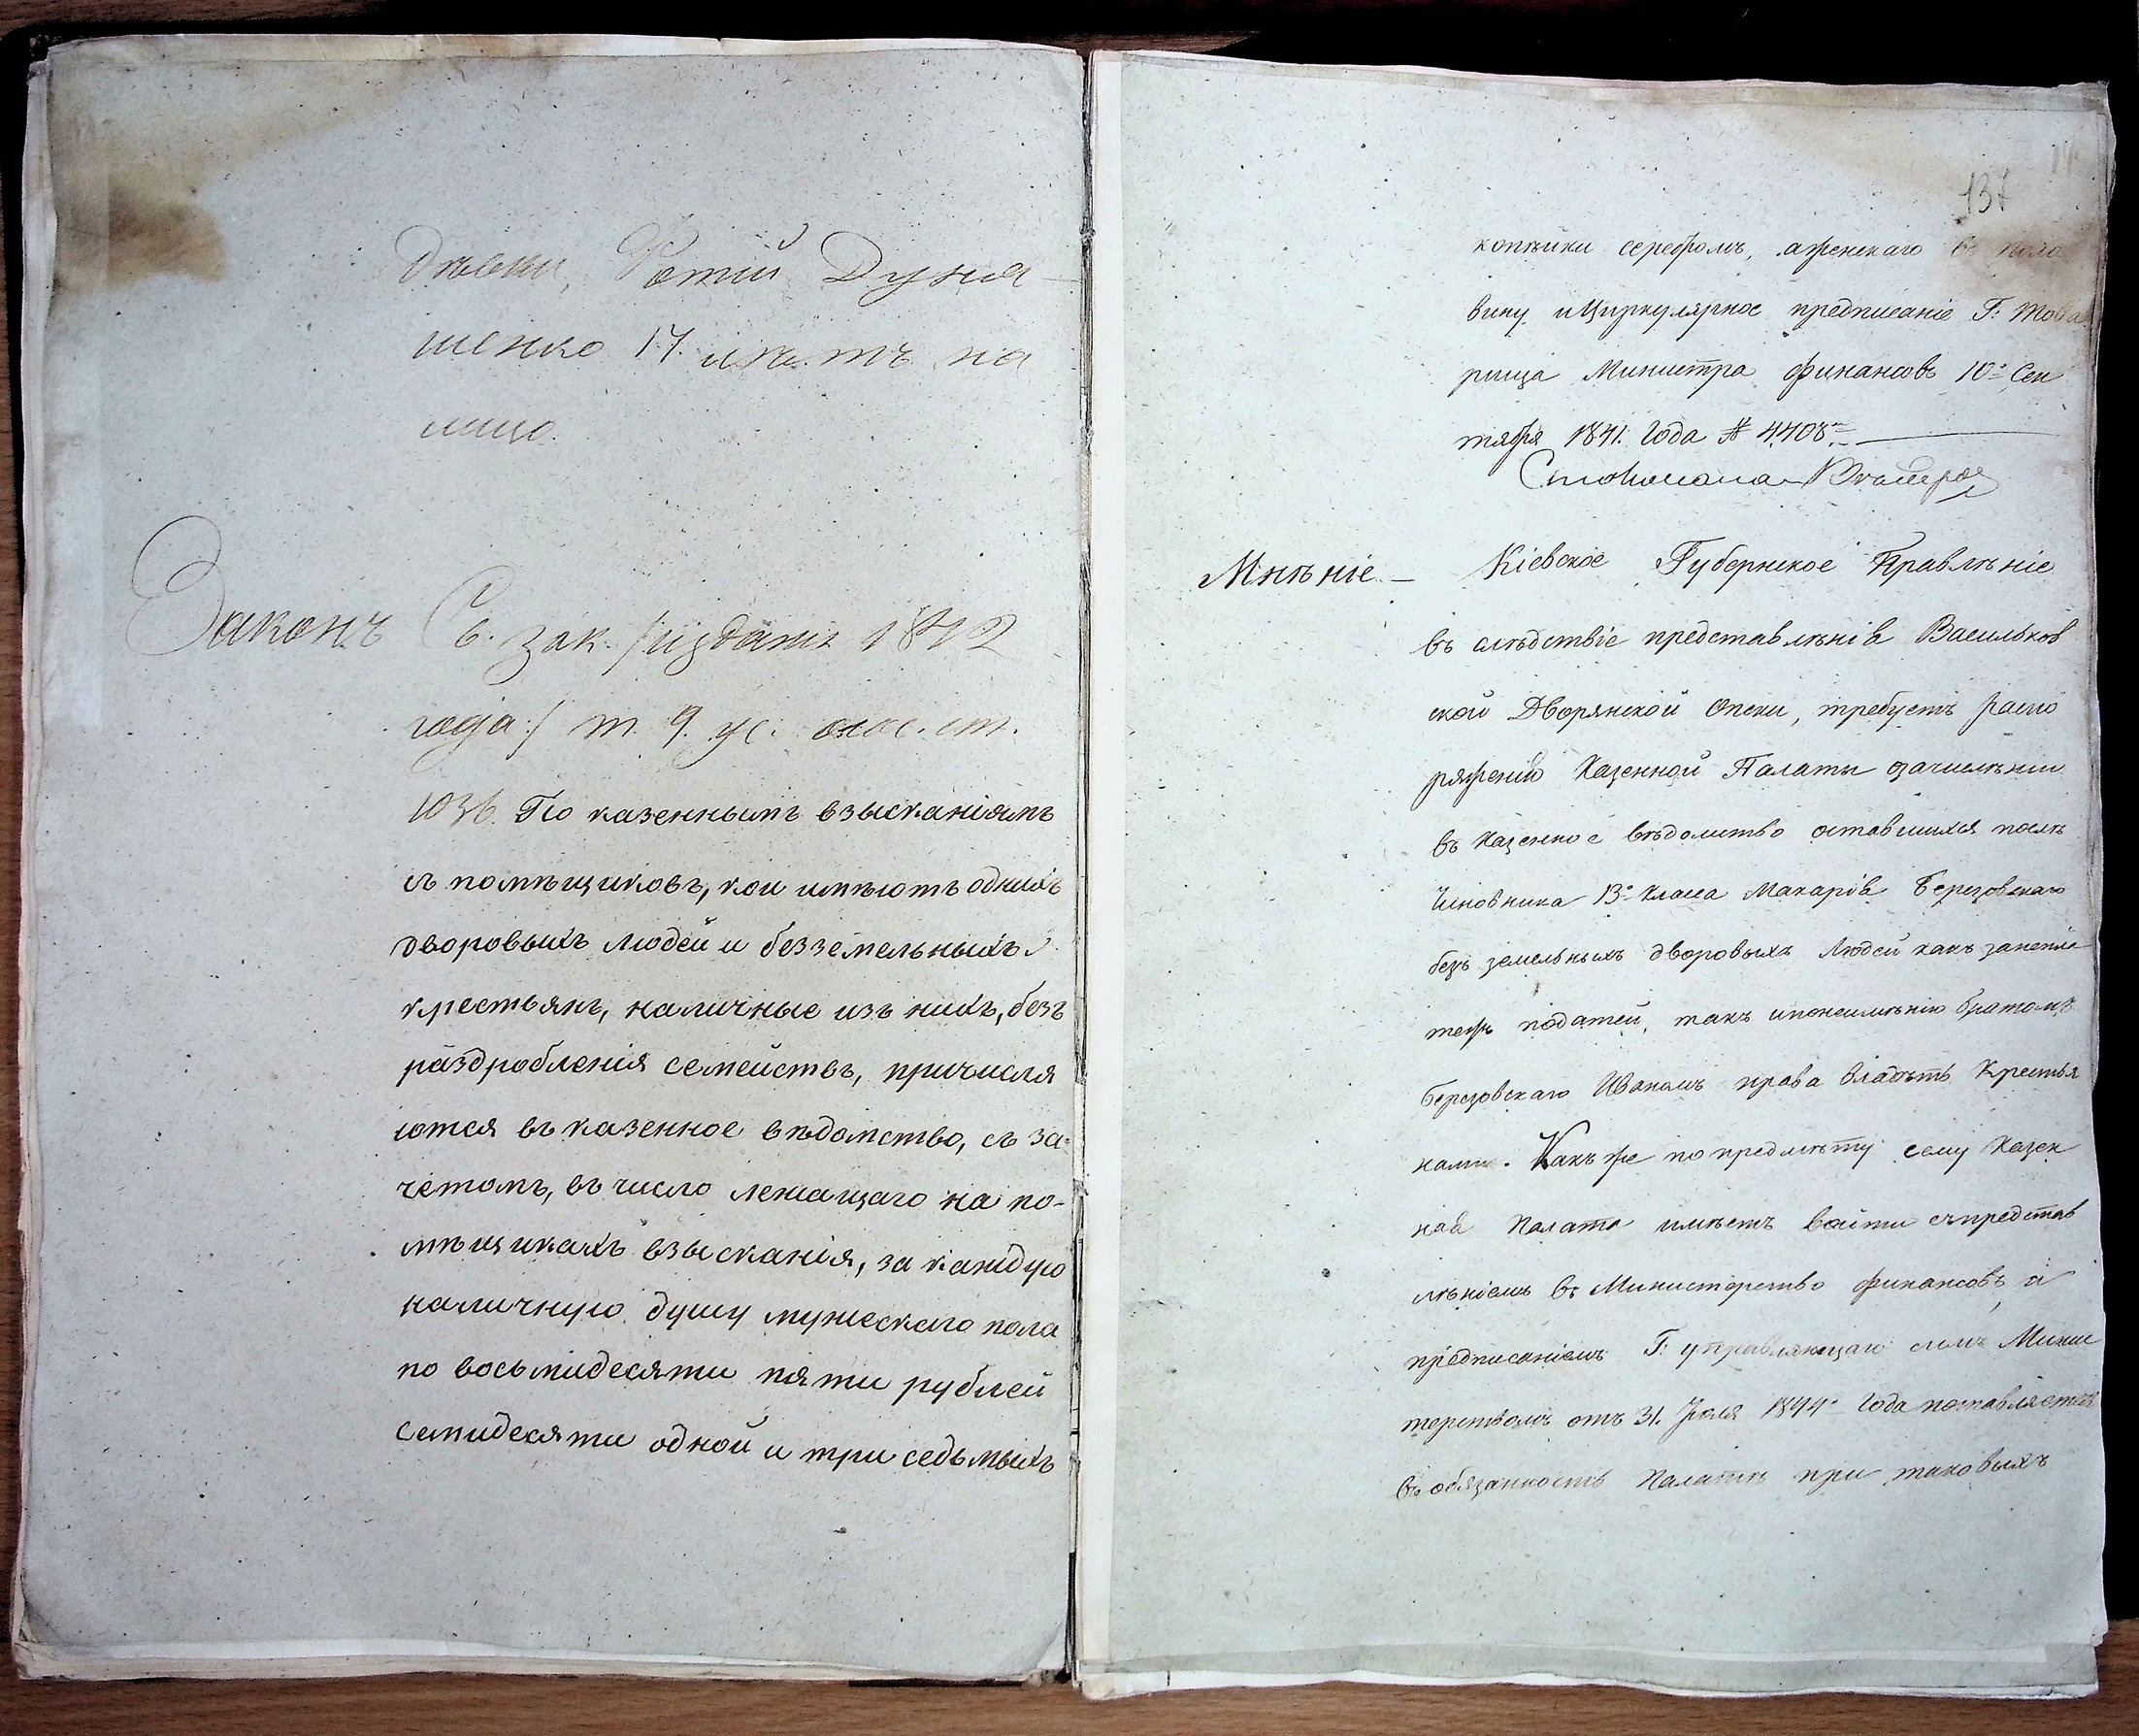 дѣвки, Фотій Дуна-
шенко 17. лѣтъ на
лицо.
Законъ Св. зак. /изданія 1842
года:/ т. 9. ус: о сос. ст.
1036. По казеннымъ взысканіямъ
съ помѣщиковъ, кои имѣютъ однихъ
дворовыхъ людей и безземельныхъ
крестьянъ, наличные изъ нихъ, безъ
раздробленія семействъ, причисля
ются въ казенное вѣдомство, съ за-
четомъ, въ число лежащаго на по-
мѣщикахъ взысканія, за каждую
наличную душу мужескаго пола
по восьмидесяти пяти рублей
семидесяти одной и три седьмыхъ
137
копѣйки серебромъ, а женскаго въ поло
вину и Циркулярное предписаніе Г: Това
рища Министра финансовъ 10го Сен
тября 1841. Года № 4408.
Мнѣніе. — Кіевское Губернское Правлѣніе
въ слѣдствіе представлѣнія Васильков
ской Дворянской Опеки, требуетъ распо
ряженія Казенной Палаты о зачислѣніи
въ казенное вѣдомство оставшихся послѣ
Чиновника 13го класа Макарія Березовскаго
безъ земельныхъ дворовыхъ Людей какъ за непла
тежъ податей, такъ и по неимѣнію братомъ
Березовскаго Иваномъ права владѣть Крестья
нами. Какъ же по предмѣту сему Казен
ная Палата имѣетъ войти съ представ
лѣніемъ въ Министерство финансовъ, и
предписаніемъ Г: управляющаго симъ Минис
терствомъ отъ 31. Іюля 1844го Года поставляется
въ обязанность Палатѣ при таковыхъ